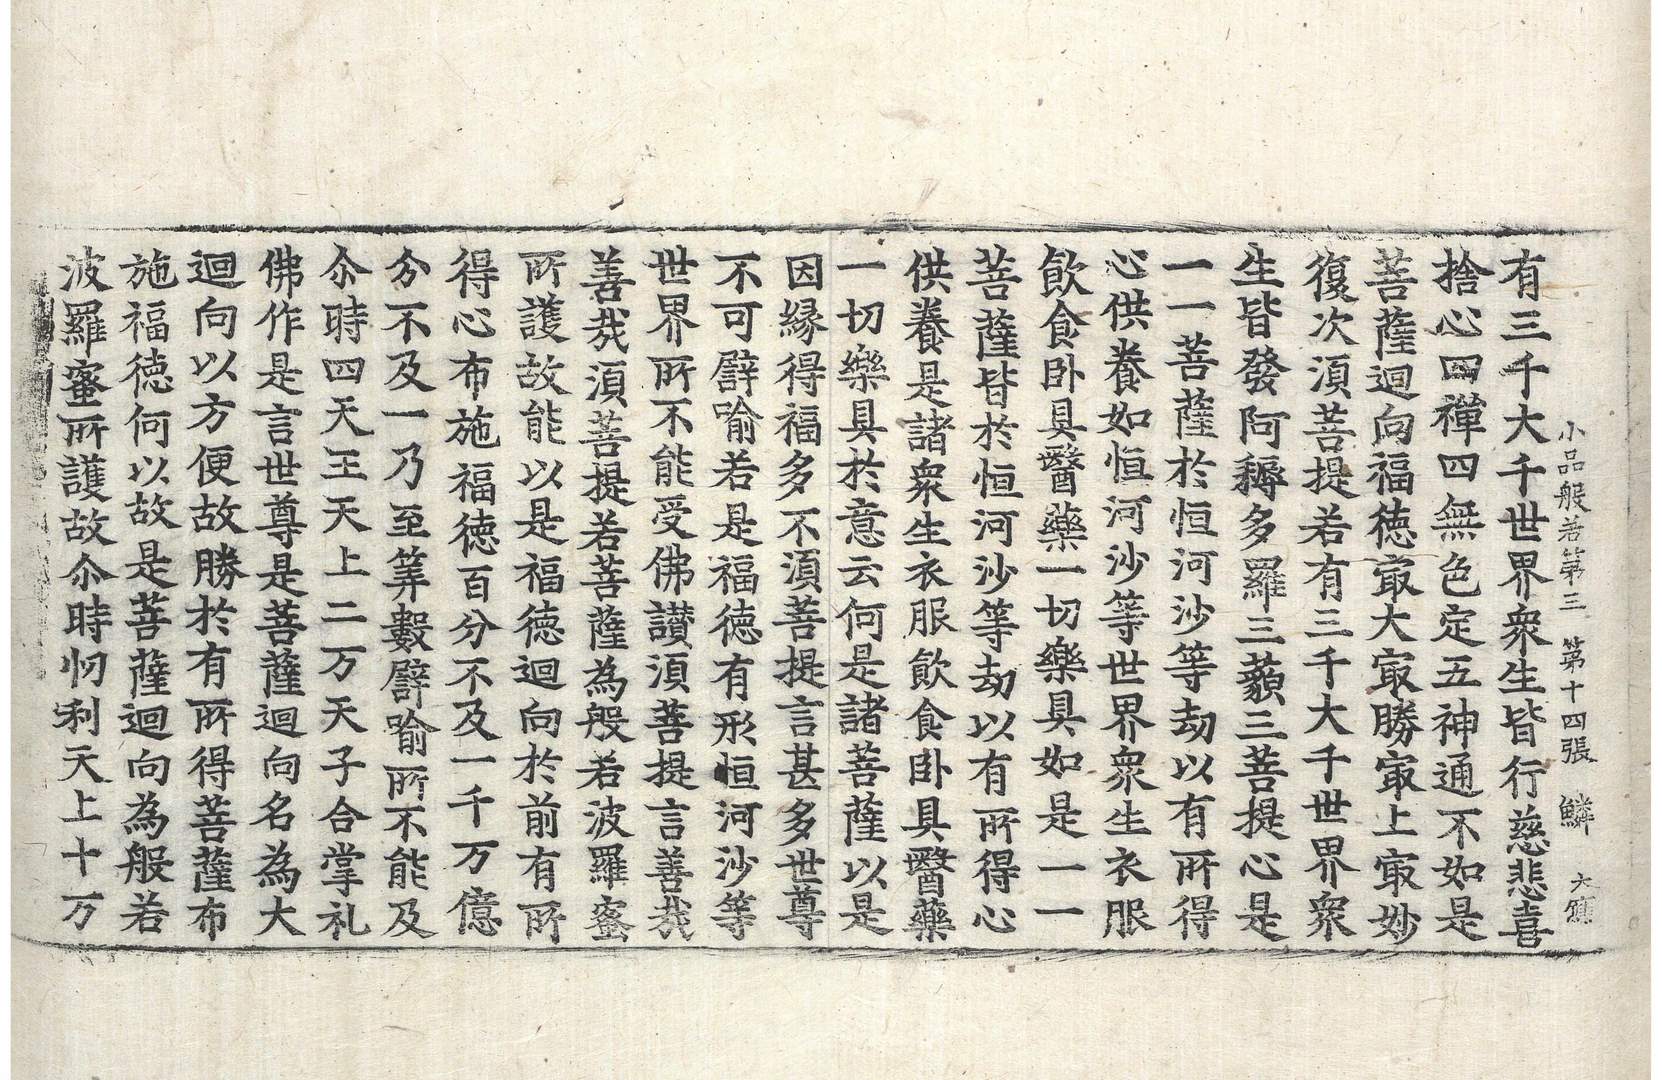 小品般若第三 第十四張 鱗 大𩓣
有三千大千世界衆生皆行慈悲喜
捨心四禪四無色定五神通不如是
菩薩迴向福徳冣大冣勝冣上冣妙
復次湏菩提若有三千大千世界衆
生皆發阿耨多羅三藐三菩提心是
一一菩薩於恒河沙等劫以有所得
心供養如恒河沙等世界衆生衣服
飲食卧具醫藥一切樂具如是一一
菩薩皆於恒河沙等劫以有所得心
供養是諸衆生衣服飲食卧具醫藥
一切樂具於意云何是諸菩薩以是
因縁得福多不湏菩提言甚多世尊
不可譬喻若是福徳有形恒河沙等
世界所不能受佛讃湏菩提言善哉
善哉湏菩提若菩薩為般若波羅蜜
所護故能以是福徳迴向於前有所
得心布施福徳百分不及一千万億
分不及一乃至筭數譬喻所不能及
尒時四天王天上二万天子合掌礼
佛作是言世尊是菩薩迴向名為大
迴向以方便故勝於有所得菩薩布
施福徳何以故是菩薩迴向為般若
波羅蜜所護故尒時忉利天上十万